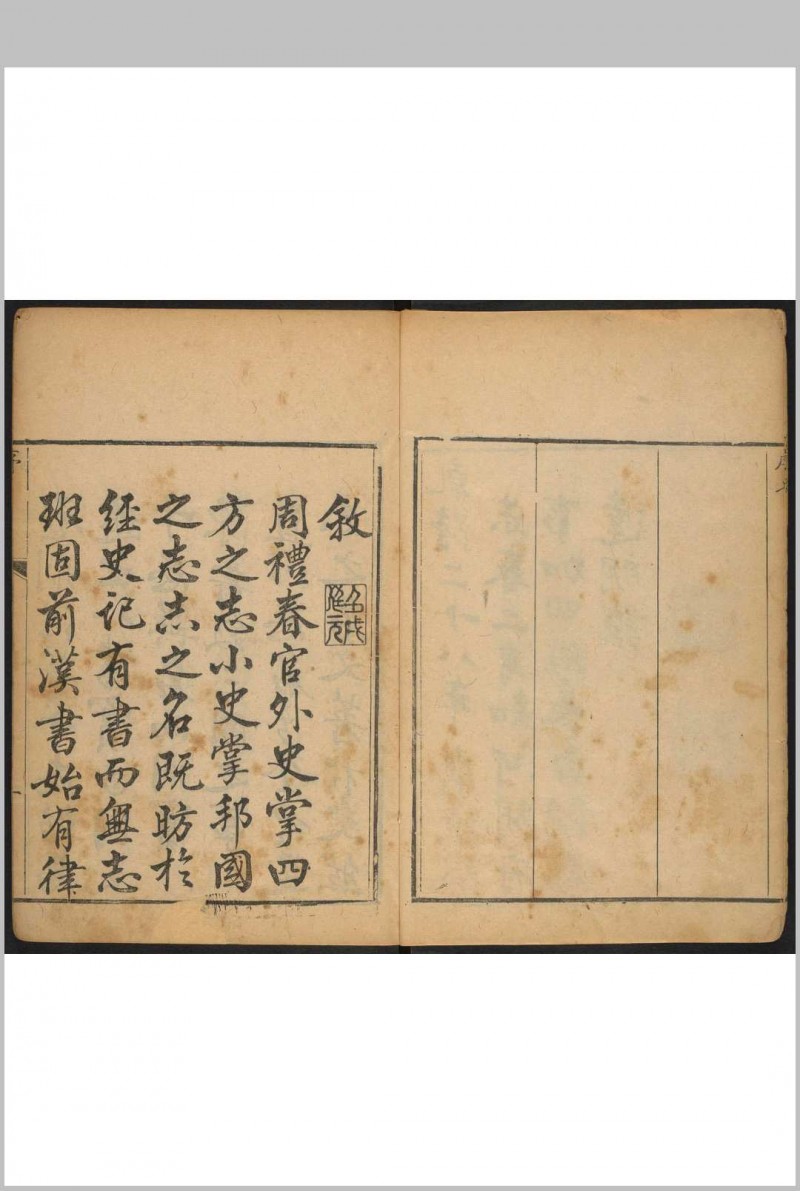 敘
周禮春官外史掌四
方之志小史掌邦國
之志志之名既昉於
經史記有書而無志
班固前漢書始有律